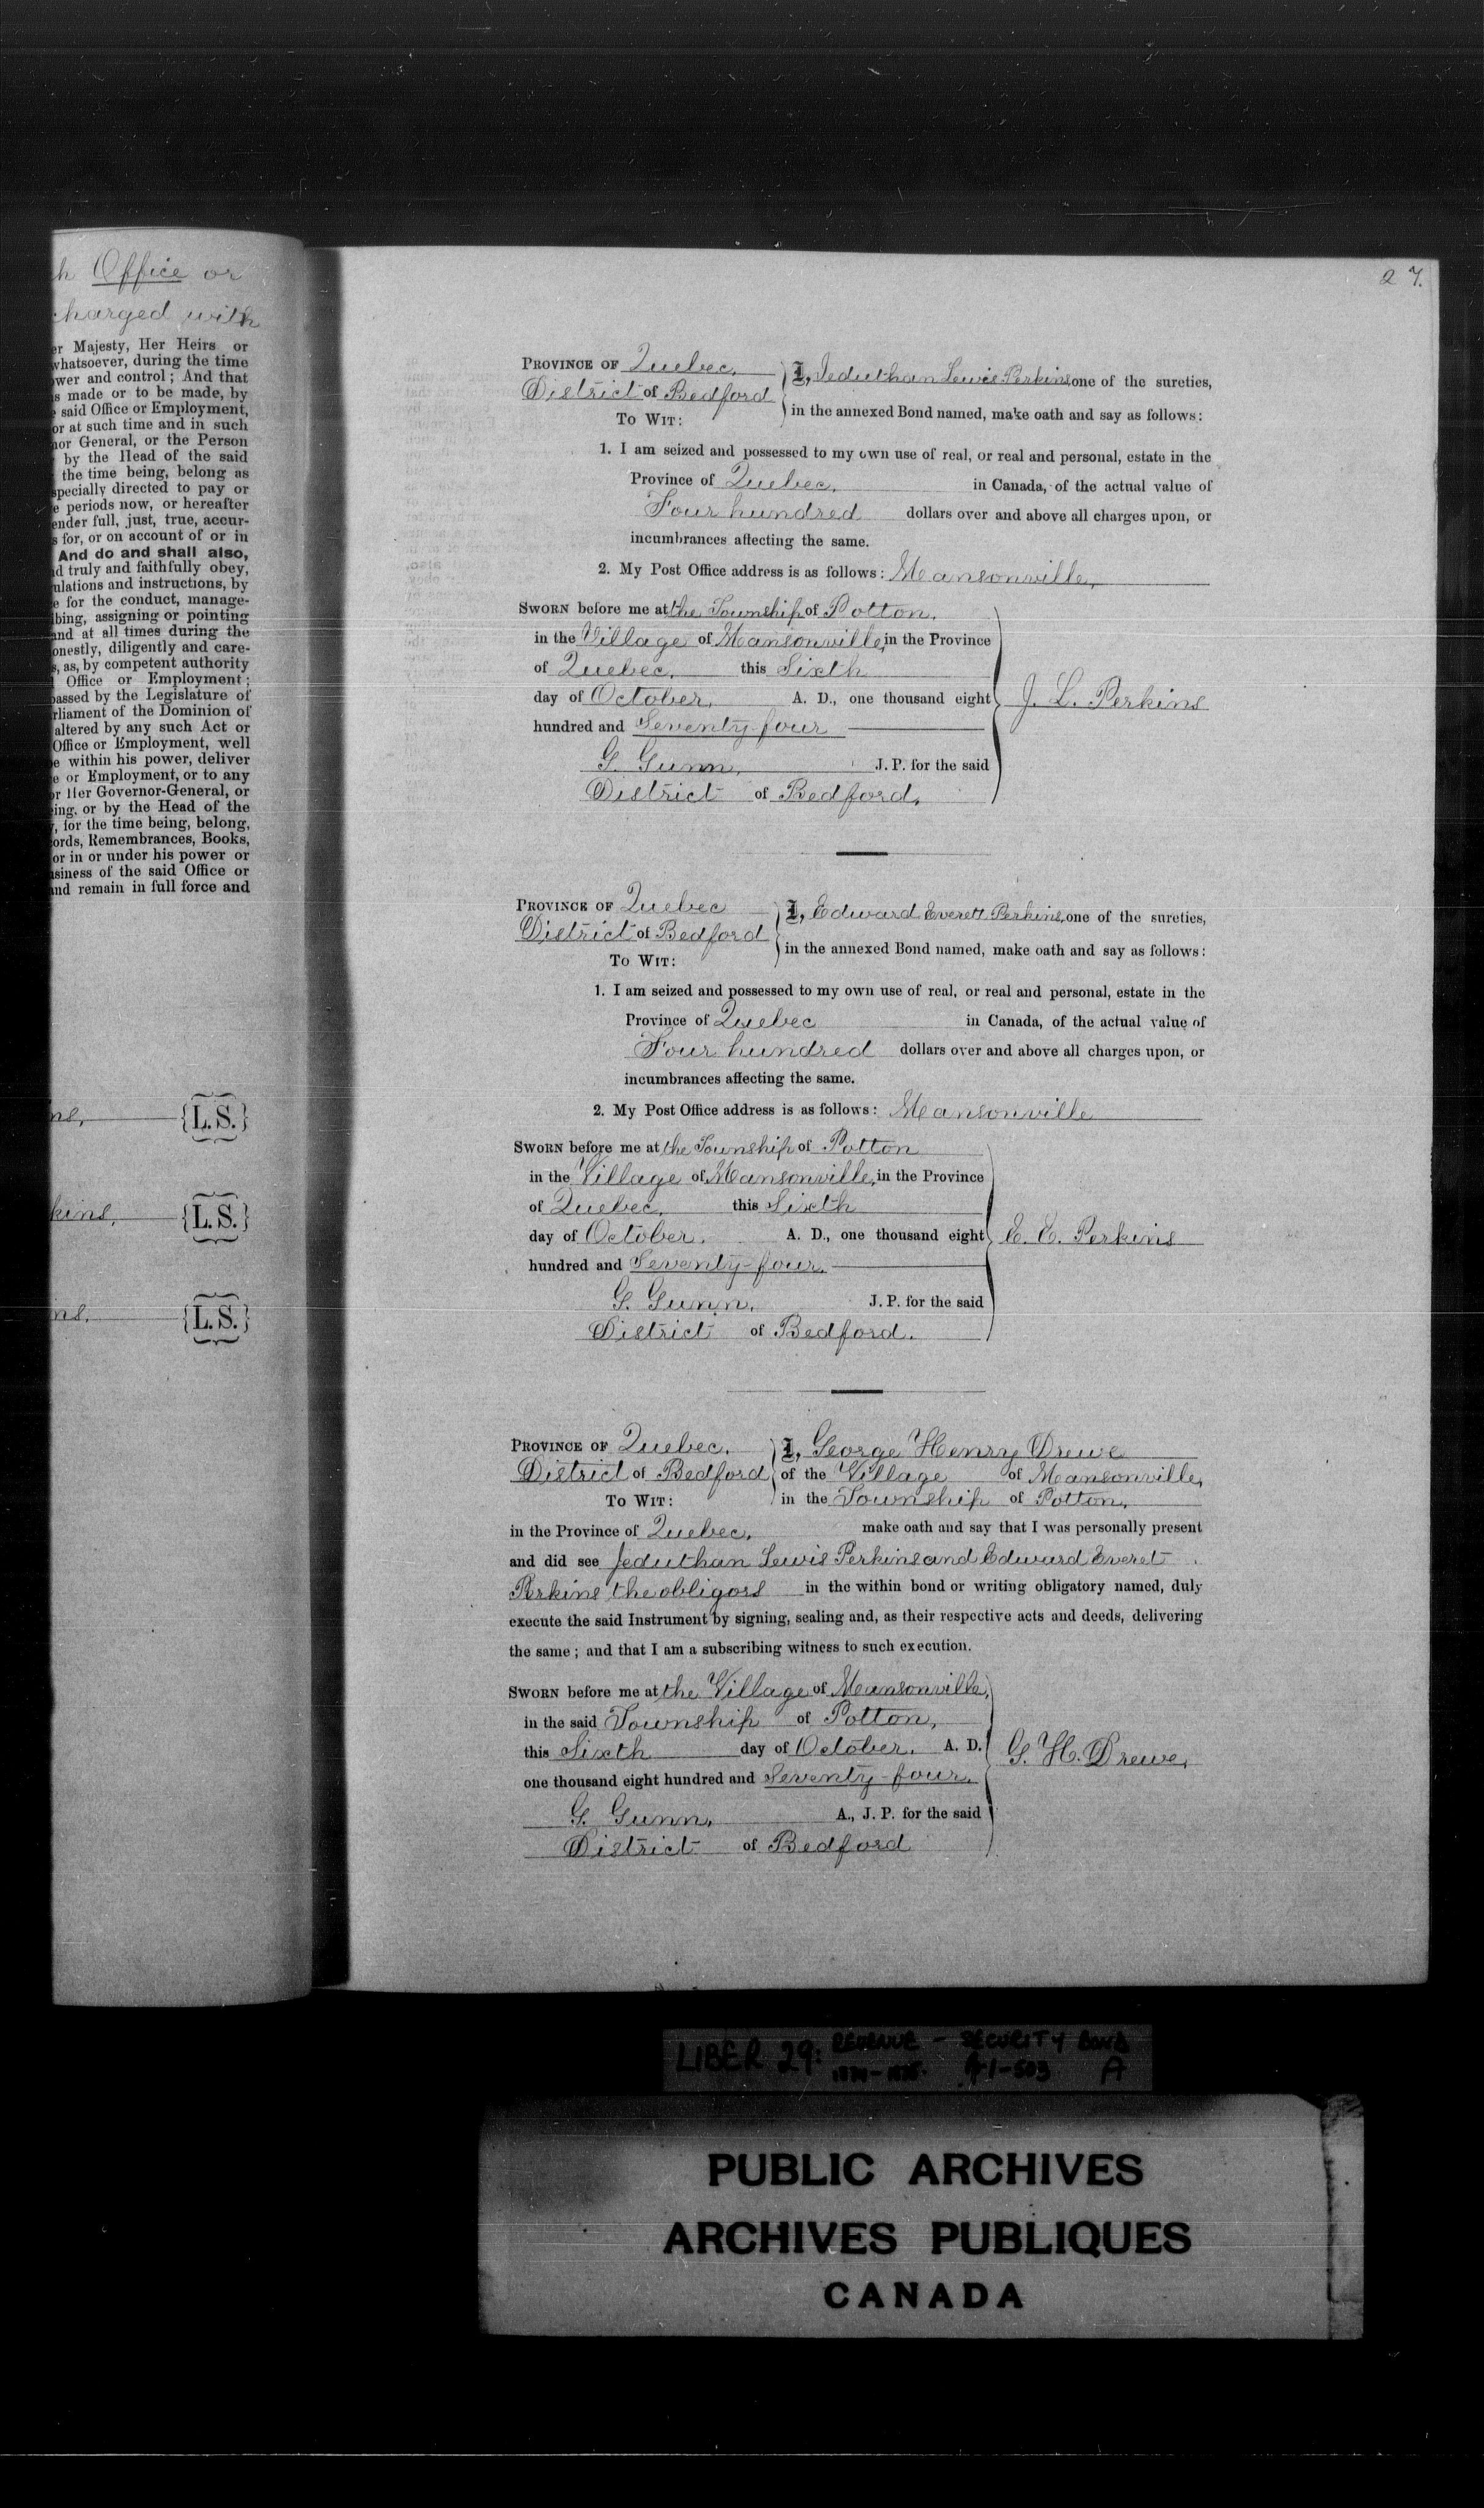 h Office or
charged with
er Majesty, Her Heirs or
whatsoever, during the time
ower and control; And that
s made or to be made, by
said Office or Employment,
or at such time and in such
nor General, or the Person
by the Head of the said
the time being, belong as
specially directed to pay or
e periods now, or hereafter
ender full, just, true, accur-
s for, or on account of or in
And do and shall also,
d truly and faithfully obey,
ulations and instructions, by
e for the conduct, manage-
bing, assigning or pointing
and at all times during the
onestly, diligently and care-
s, as, by competent authority
Office or Employment;
passed by the Legislature of
rliament of the Dominion of
altered by any such Act or
Office or Employment, well
e within his power, deliver
e or Employment, or to any
or Her Governor-General, or
ing, or by the Head of the
, for the time being, belong,
ords, Remembrances, Books,
or in or under his power or
siness of the said Office or
and remain in full force and
ns, {L.S.}
kins, {L.S.}
ns, {L.S.}
27.
PROVINCE OF Quebec, I, Jeduthan Lewis Perkins, one of the sureties,
District of Bedford in the annexed Bond named, make oath and say as follows:
TO WIT:
1. I am seized and possessed to my own use of real, or real and personal, estate in the
Province of Quebec, in Canada, of the actual value of
Four hundred dollars over and above all charges upon, or
incumbrances affecting the same.
2. My Post Office address is as follows: Mansonville,
SWORN before me at the Township of Potton,
in the Village of Mansonville, in the Province
of Quebec, this Sixth
day of October, A. D., one thousand eight J. L. Perkins
hundred and Seventy-four
G. Gunn, J. P. for the said
District of Bedford,
PROVINCE OF Quebec I, Edward Everett Perkins, one of the sureties,
District of Bedford in the annexed Bond named, make oath and say as follows:
TO WIT:
1. I am seized and possessed to my own use of real, or real and personal, estate in the
Province of Quebec in Canada, of the actual value of
Four hundred dollars over and above all charges upon, or
incumbrances affecting the same.
2. My Post Office address is as follows: Mansonville
SWORN before me at the Township of Potton
in the Village of Mansonville, in the Province
of Quebec, this Sixth
day of October, A. D., one thousand eight E. E. Perkins
hundred and Seventy-four.
G. Gunn, J. P. for the said
District of Bedford.
PROVINCE OF Quebec, I, George Henry Drewe
District of Bedford of the Village of Mansonville,
TO WIT: in the Township of Potton,
in the Province of Quebec, make oath and say that I was personally present
and did see Jeduthan Lewis Perkins and Edward Everet
Perkins the obligors in the within bond or writing obligatory named, duly
execute the said Instrument by signing, sealing and, as their respective acts and deeds, delivering
the same; and that I am a subscribing witness to such execution.
SWORN before me at the Village of Mansonville,
in the said Township of Potton,
this Sixth day of October, A. D. G. H. Drewe,
one thousand eight hundred and Seventy-four,
G. Gunn, A., J. P. for the said
District of Bedford
LIBER 29: REVENUE - SECURITY BOND
A
PUBLIC ARCHIVES
ARCHIVES PUBLIQUES
CANADA